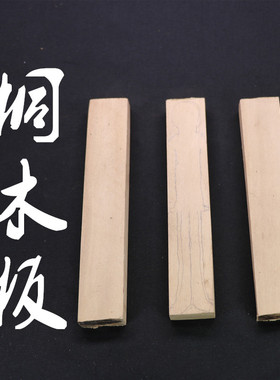 桐木板